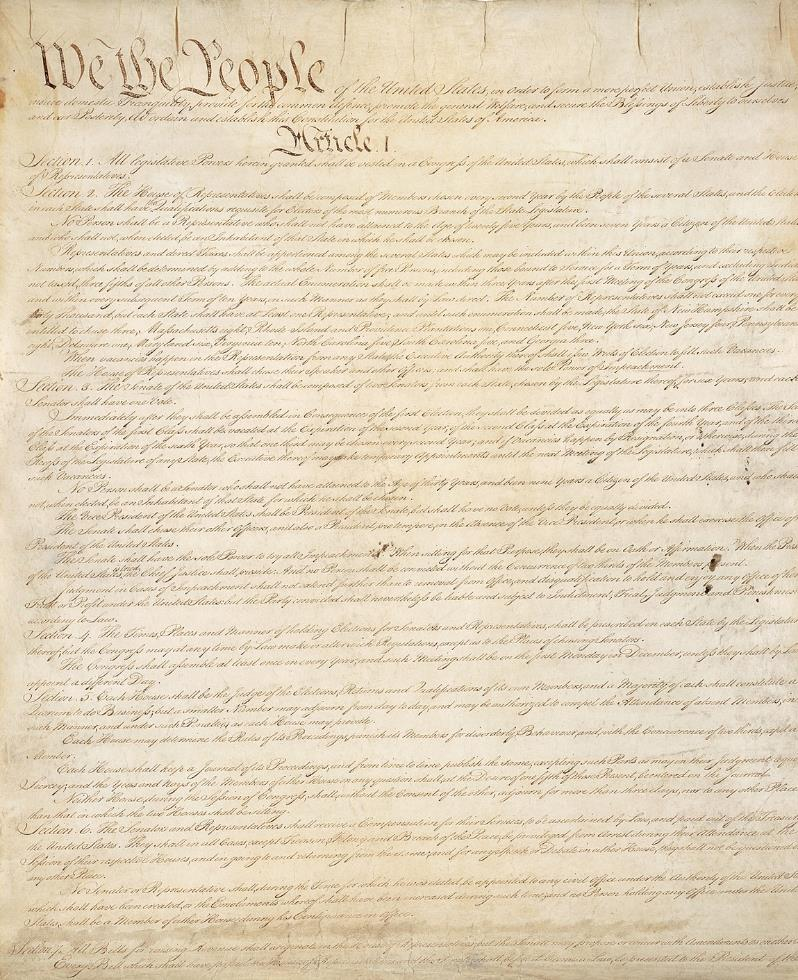 We the People of the United States, in Order to form a more perfect Union, establish Justice,
insure domestic Tranquility, provide for the common defence, promote the general Welfare, and secure the Blessings of Liberty to ourselves
and our Posterity, do ordain and establish this Constitution for the United States of America.
Article. I.
Section. 1. All legislative Powers herein granted shall be vested in a Congress of the United States, which shall consist of a Senate and House
of Representatives.
Section. 2. The House of Representatives shall be composed of Members chosen every second Year by the People of the several States, and the
in each State shall have the Qualifications requisite for Electors of the most numerous Branch of the State Legislature.
No Person shall be a Representative who shall not have attained to the Age of twenty five Years, and been seven Years a Citizen of the United
and who shall not, when elected, be an Inhabitant of that State in which he shall be chosen.
Representatives and direct Taxes shall be apportioned among the several States which may be included within this Union, according to their respective
Numbers, which shall be determined by adding to the whole Number of free Persons, including those bound to Service for a Term of Years, and excluding Indians
not taxed, three fifths of all other Persons. The actual Enumeration shall be made within three Years after the first Meeting of the Congress of the United
and within every subsequent Term of ten Years, in such Manner as they shall by Law direct. The Number of Representatives shall not exceed one for every
thirty Thousand, but each State shall have at Least one Representative; and until such enumeration shall be made, the State of New Hampshire shall be
entitled to chuse three, Massachusetts eight, Rhode Island and Providence Plantations one, Connecticut five, New York six, New Jersey four, Pennsylvania
eight, Delaware one, Maryland six, Virginia ten, North Carolina five, South Carolina five, and Georgia three.
When vacancies happen in the Representation from any State, the Executive Authority thereof shall issue Writs of Election to fill such Vacancies.
The House of Representatives shall chuse their Speaker and other Officers; and shall have the sole Power of Impeachment.
Section. 3. The Senate of the United States shall be composed of two Senators from each State, chosen by the Legislature thereof, for six Years; and each
Senator shall have one Vote.
Immediately after they shall be assembled in Consequence of the first Election, they shall be divided as equally as may be into three Classes. The
of the Senators of the first Class shall be vacated at the Expiration of the second Year, of the second Class at the Expiration of the fourth Year, and of the third
Class at the Expiration of the sixth Year, so that one third may be chosen every second Year; and if Vacancies happen by Resignation, or otherwise, during the
Recess of the Legislature of any State, the Executive thereof may make temporary Appointments until the next Meeting of the Legislature, which shall then fill
such Vacancies.
No Person shall be a Senator who shall not have attained to the Age of thirty Years, and been nine Years a Citizen of the United States, and who shall
not, when elected, be an Inhabitant of that State for which he shall be chosen.
The Vice President of the United States shall be President of the Senate, but shall have no Vote, unless they be equally divided.
The Senate shall chuse their other Officers, and also a President pro tempore, in the Absence of the Vice President, or when he shall exercise the Office of
President of the United States.
The Senate shall have the sole Power to try all Impeachments. When sitting for that Purpose, they shall be on Oath or Affirmation. When the
of the United States is tried, the Chief Justice shall preside: And no Person shall be convicted without the Concurrence of two thirds of the Members present.
Judgment in Cases of Impeachment shall not extend further than to removal from Office, and disqualification to hold and enjoy any Office of
Trust or Profit under the United States: but the Party convicted shall nevertheless be liable and subject to Indictment, Trial, Judgment and Punishment,
according to Law.
Section. 4. The Times, Places and Manner of holding Elections for Senators and Representatives, shall be prescribed in each State by the Legislature
thereof; but the Congress may at any time by Law make or alter such Regulations, except as to the Places of chusing Senators.
The Congress shall assemble at least once in every Year, and such Meeting shall be on the first Monday in December, unless they shall by Law
appoint a different Day.
Section. 5. Each House shall be the Judge of the Elections, Returns and Qualifications of its own Members, and a Majority of each shall constitute a
Quorum to do Business; but a smaller Number may adjourn from day to day, and may be authorized to compel the Attendance of absent Members, in
such Manner, and under such Penalties as each House may provide.
Each House may determine the Rules of its Proceedings, punish its Members for disorderly Behaviour, and, with the Concurrence of two thirds, expel a
Member.
Each House shall keep a Journal of its Proceedings, and from time to time publish the same, excepting such Parts as may in their Judgment require
Secrecy; and the Yeas and Nays of the Members of either House on any question shall, at the Desire of one fifth of those Present, be entered on the Journal.
Neither House, during the Session of Congress, shall, without the Consent of the other, adjourn for more than three days, nor to any other Place
than that in which the two Houses shall be sitting.
Section. 6. The Senators and Representatives shall receive a Compensation for their Services, to be ascertained by Law, and paid out of the Treasury
the United States. They shall in all Cases, except Treason, Felony and Breach of the Peace, be privileged from Arrest during their Attendance at the
Session of their respective Houses, and in going to and returning from the same; and for any Speech or Debate in either House, they shall not be questioned
any other Place.
No Senator or Representative shall, during the Time for which he was elected, be appointed to any civil Office under the Authority of the United
which shall have been created, or the Emoluments whereof shall have been encreased during such time; and no Person holding any Office under the United
States, shall be a Member of either House during his Continuance in Office.
Section. 7. All Bills for raising Revenue shall originate in the House of Representatives; but the Senate may propose or concur with Amendments as on other
Every Bill which shall have passed the House of Representatives and the Senate, shall, before it become a Law, be presented to the President of the